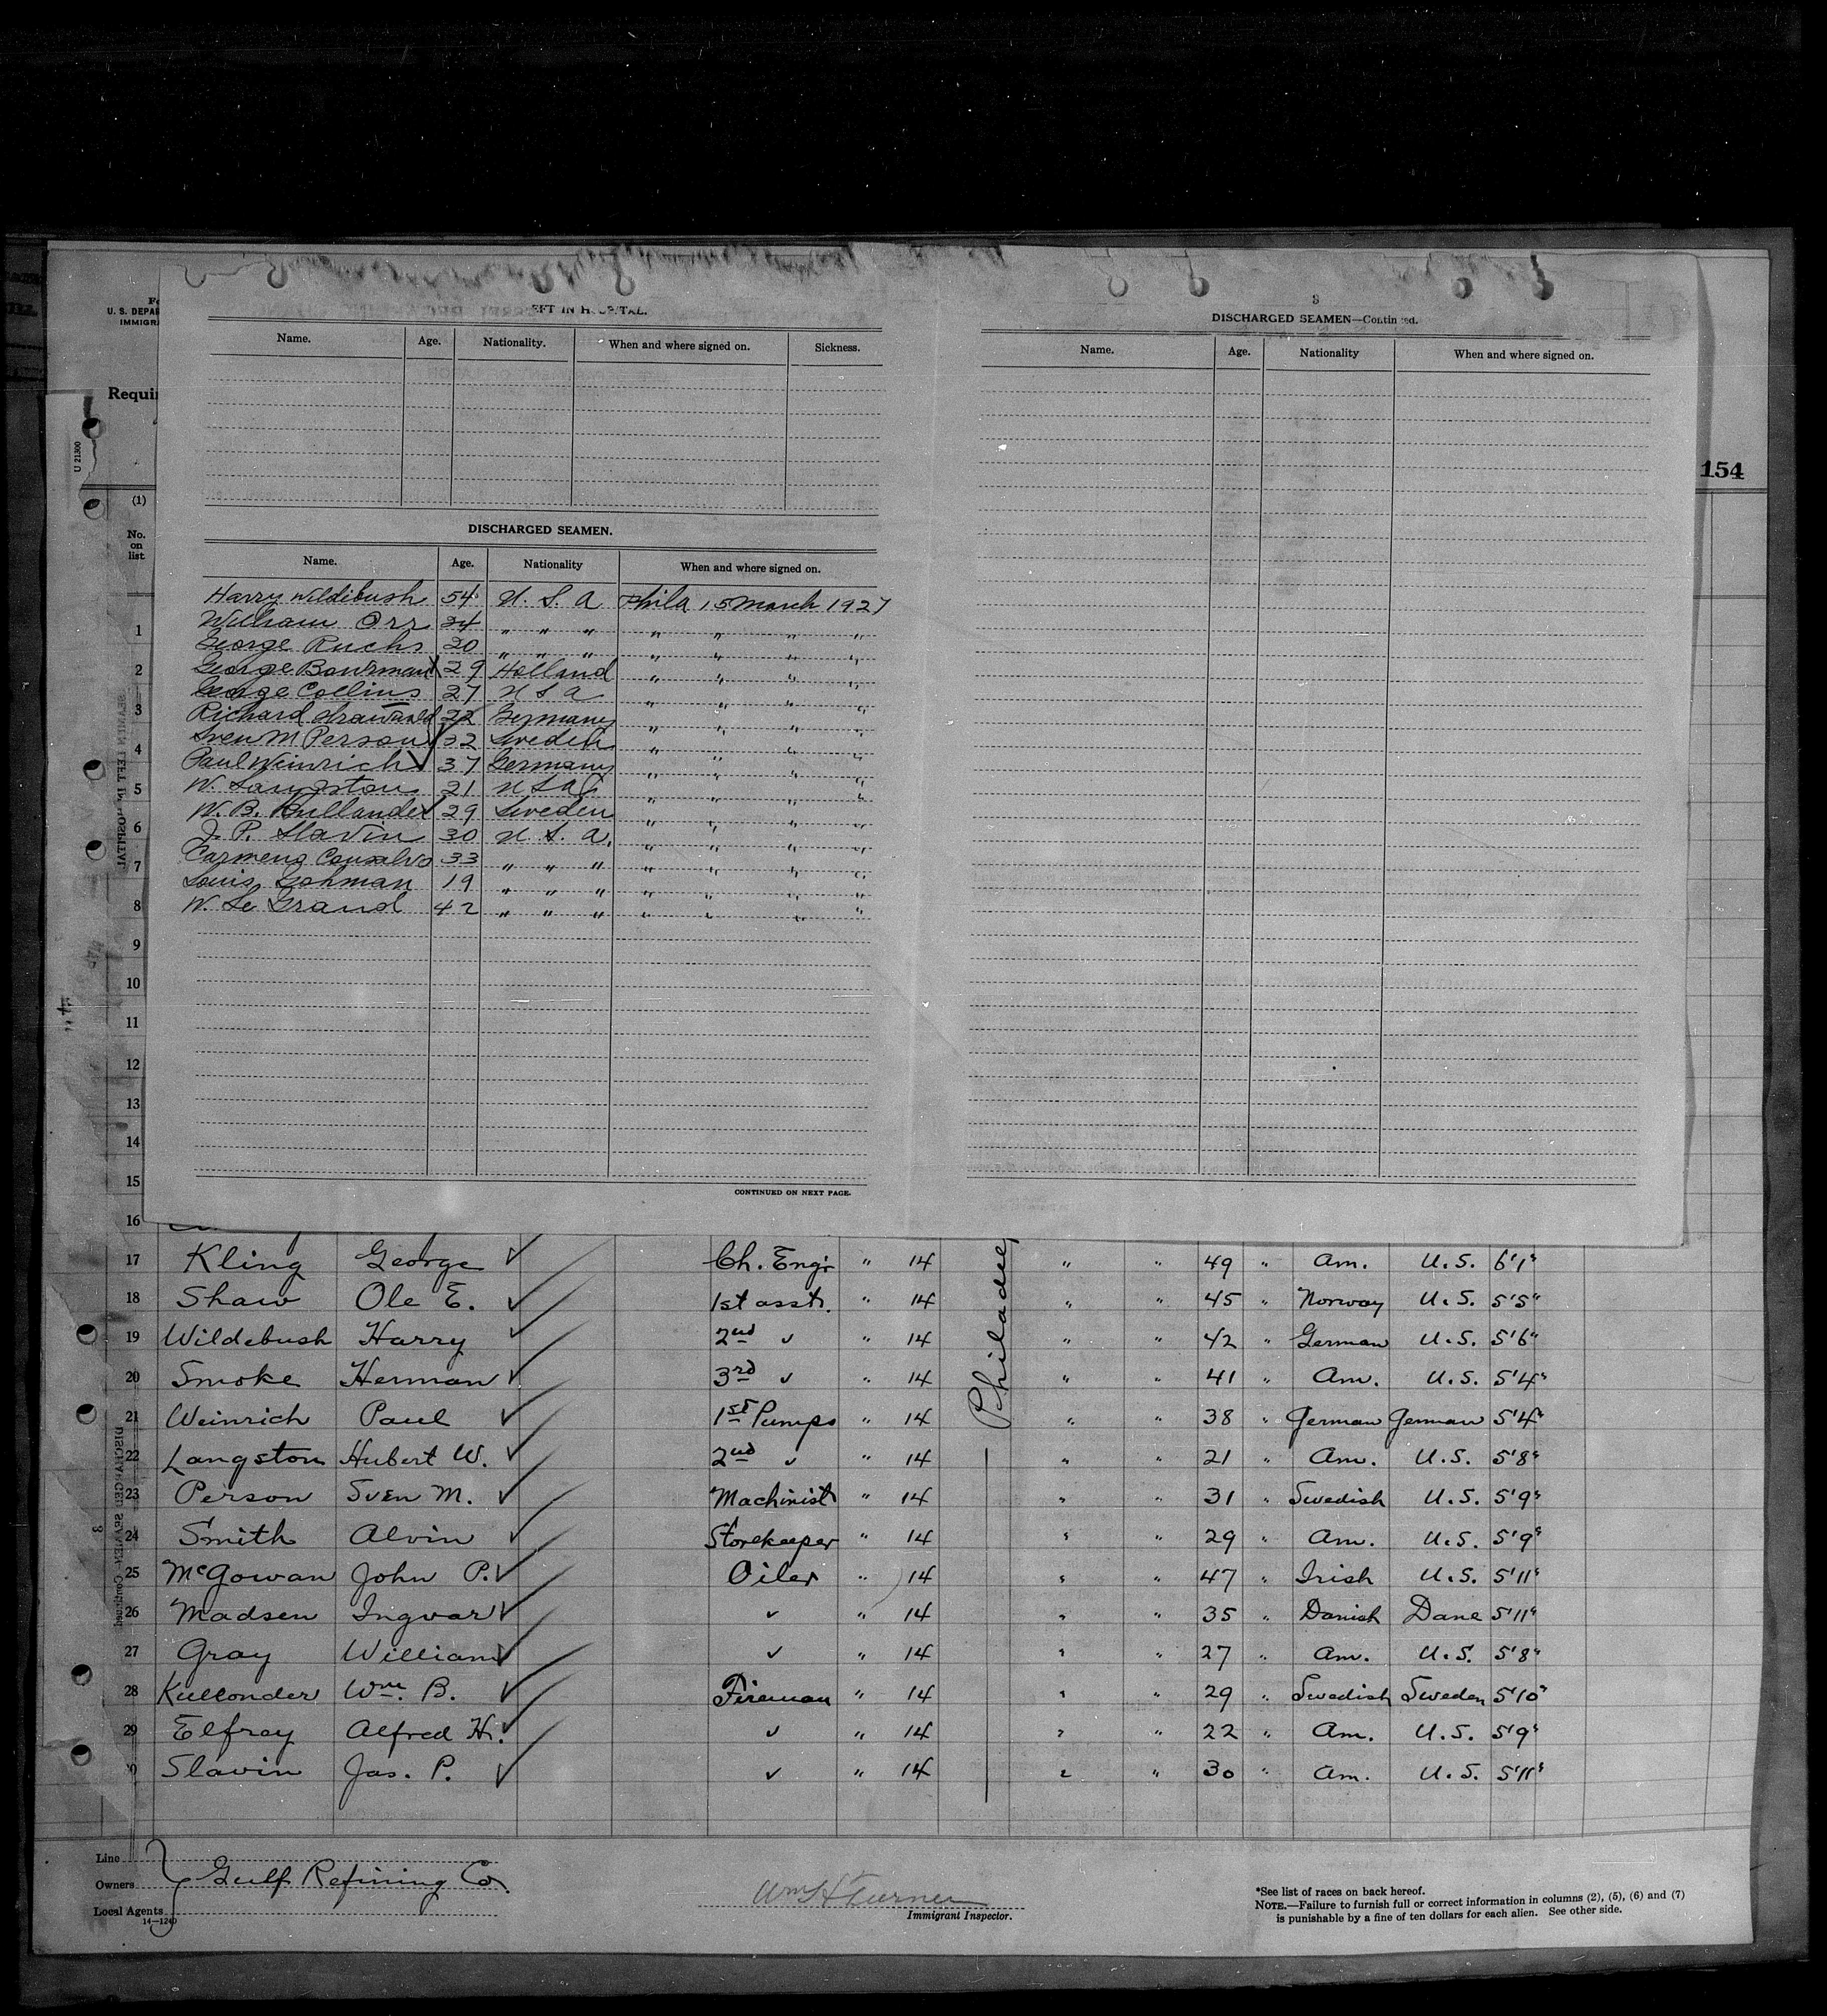 U. S. DEPAR
IMMIGRA
Requi
U 21300
(1)
No.
on
list
154
EFT IN HOSPITAL.
Name. Age. Nationality. When and where signed on. Sickness.
DISCHARGED SEAMEN.
Name. Age. Nationality When and where signed on.
Harry Wildibush 54 U. S. A Phila 15 March 1927
William Orr 24 " " " " " " "
George Ruchs 20 " " " " " " "
George Bowman 29 Holland " " " "
George Collins 27 U S A " " " "
Richard 22 Germany " " " "
Sven M Person 32 Sweden " " " "
Paul Weinrich 37 Germany " " " "
W. Langston 21 U S A " " " "
W. B. Kullander 29 Sweden " " " "
J. P. Slavin 30 U. S. A. " " " "
Carmeno Consalvo 33 " " " " " " "
Louis Gohman 19 " " " " " " "
W. Le Grand 42 " " " " " " "
CONTINUED ON NEXT PAGE.
3
DISCHARGED SEAMEN—Continued.
Name. Age. Nationality When and where signed on.
1
2
3
4
5
6
7
8
9
10
11
12
13
14
15
16
17 Kling George ✓ Ch. Engr " 14 " " 49 " Am. U.S. 6'1"
18 Shaw Ole E. ✓ 1st asst. " 14 " " 45 " Norway U.S. 5'5"
19 Wildebush Harry ✓ 2nd ✓ " 14 " " 42 " German U.S. 5'6"
20 Smoke Herman ✓ 3rd ✓ " 14 " " 41 " Am. U.S. 5'4"
21 Weinrich Paul ✓ 1st Pumps " 14 " " 38 " German German 5'4"
22 Langston Hubert W. ✓ 2nd ✓ " 14 " " 21 " Am. U.S. 5'8"
23 Person Sven M. ✓ Machinist " 14 " " 31 " Swedish U.S. 5'9"
24 Smith Alvin ✓ Storekeeper " 14 " " 29 " Am. U.S. 5'9"
25 McGowan John P. ✓ Oiler " 14 " " 47 " Irish U.S. 5'11"
26 Madsen Ingvar ✓ ✓ " 14 " " 35 " Danish Dane 5'11"
27 Gray William ✓ ✓ " 14 " " 27 " Am. U.S. 5'8"
28 Kullonder Wm. B. ✓ Fireman " 14 " " 29 " Swedish Sweden 5'10"
29 Elfray Alfred H. ✓ ✓ " 14 " " 22 " Am. U.S. 5'9"
0 Slavin Jas. P. ✓ ✓ " 14 " " 30 " Am. U.S. 5'11"
Philadel
Line
Owners Gulf Refining Co.
Local Agents
14—1240
Wm H Turner
Immigrant Inspector.
*See list of races on back hereof.
NOTE.—Failure to furnish full or correct information in columns (2), (5), (6) and (7)
is punishable by a fine of ten dollars for each alien. See other side.